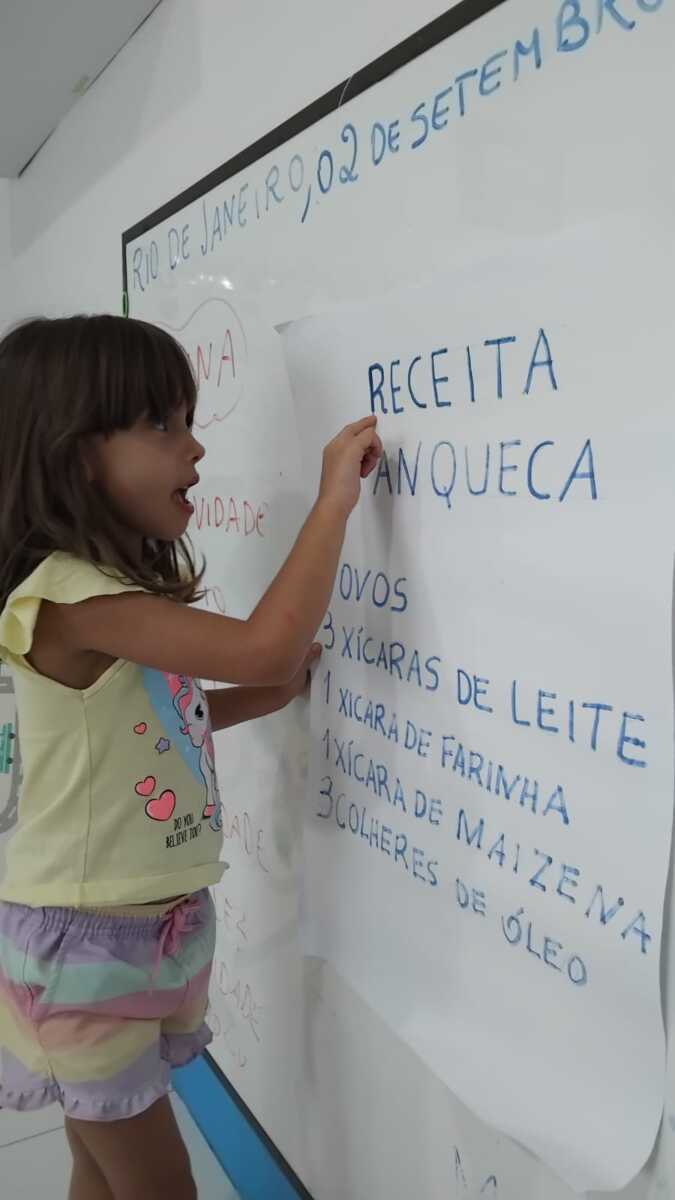 RIO DE JANEIRO, 02 DE SETEMBRO
NA
RECEITA
ANQUECA
VIDADE
OVOS
3 XÍCARAS DE LEITE
1 XICARA DE FARINHA
1 XÍCARA DE MAIZENA
3 COLHERES DE ÓLEO
DO YOU
BELIEVE TOO?
DADE
IDADE